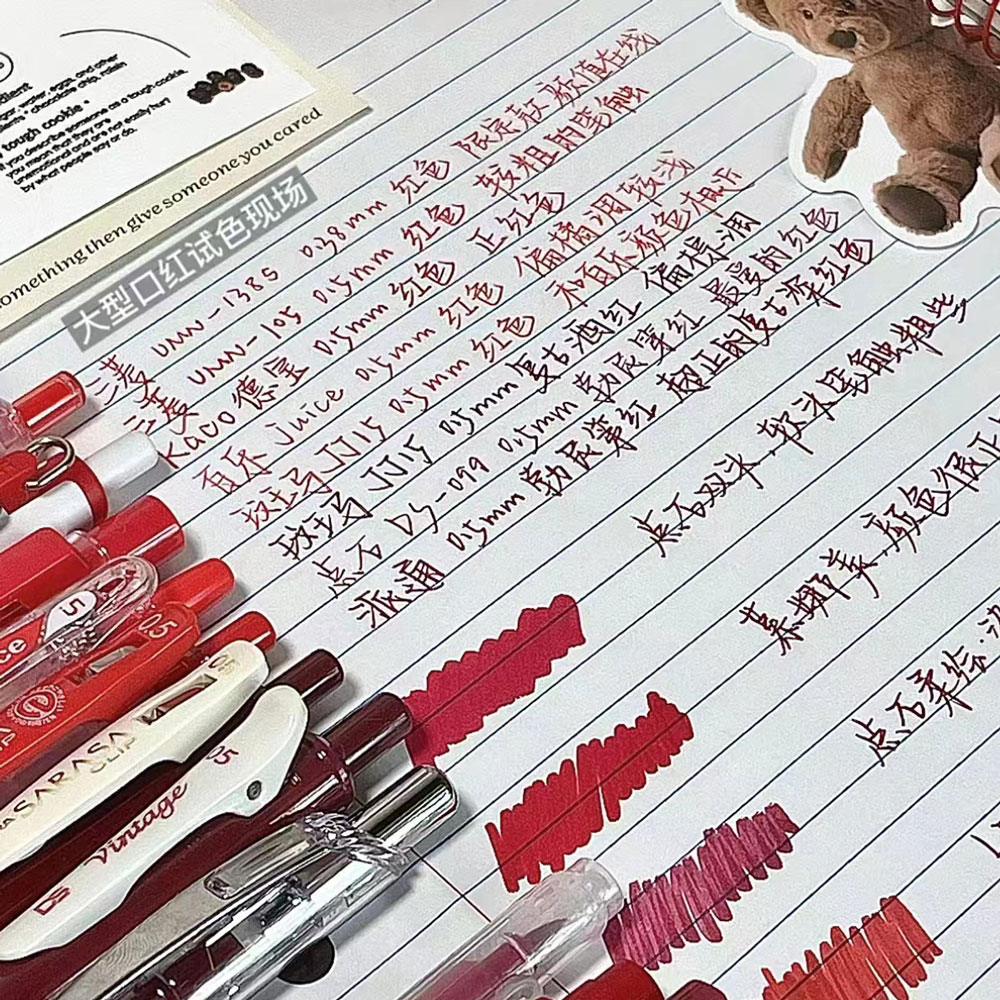 dient
gar, water, eggs, and other
ients • chocolate chip, raisin
tough cookie •
if you describe someone as a tough cookie,
you mean that they are
unemotional and are not easily hurt
by what people say or do.
omething then give someone you cared
大型口红试色现场
三菱 UMN-138S 0.38mm 红色 限定款 颜值在线
三菱 UMN-105 0.5mm 红色 较粗的笔触
Kaco 德宝 0.5mm 红色 正红色
百乐 Juice 0.5mm 红色 偏橘调较浅
斑马JJ15 0.5mm 红色 和百乐颜色相片
斑马 JJ15 0.5mm 复古酒红 偏棕调
点石 DS-099 0.5mm 勃艮第红 最爱的红色
派通 0.5mm 勃艮第红 超正的复古深红色
点石双冰.软冰笔触粗些
慕娜美.颜色很正
点石柔绘.
5
ce
0.5
0.5
SARASA
CLIP
0.5
Vintage